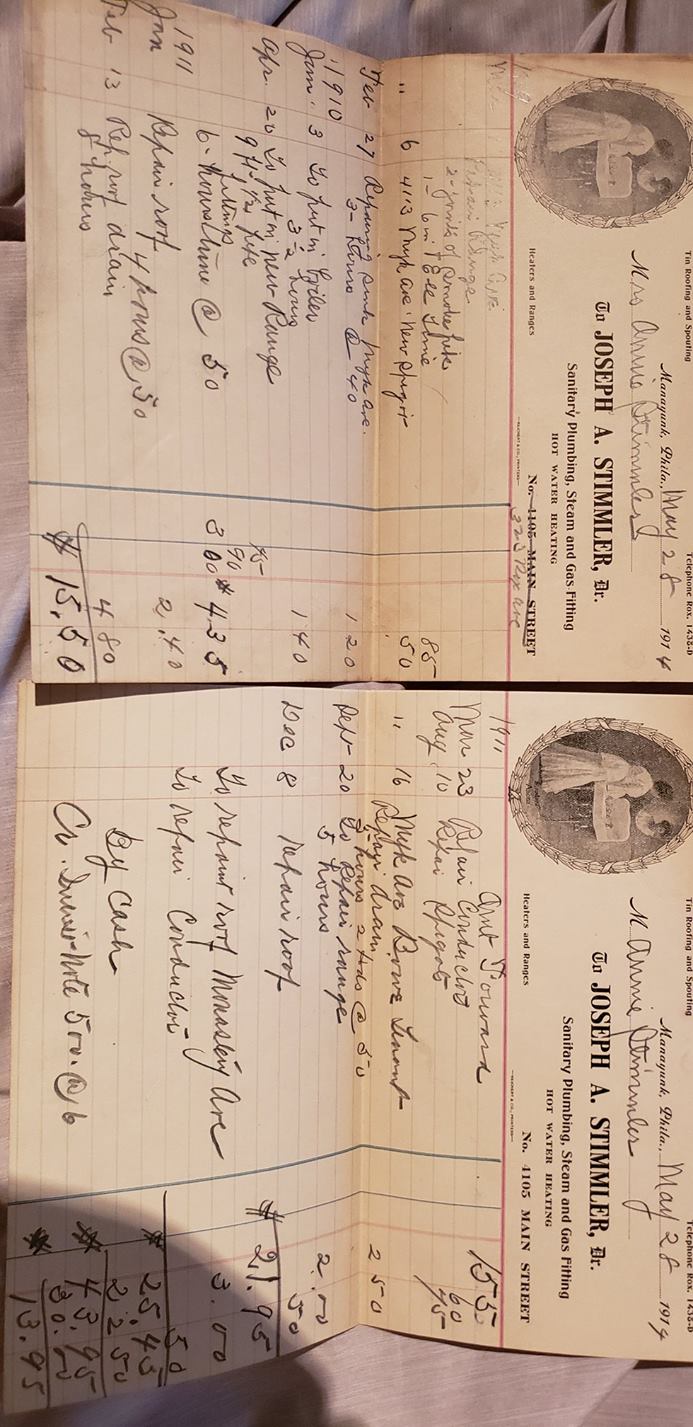 Tin Roofing and Spouting
Telephone Rox. 1438-D
Manayunk, Phila., May 28 1914
Mrs Annie Stimmler
To JOSEPH A. STIMMLER, Dr.
Sanitary Plumbing, Steam and Gas Fitting
HOT WATER HEATING
Heaters and Ranges
No. 4105 MAIN STREET
Repair Range
2 - joints of smoke pipe
85
" 6 4113 Myk ave New Spigot 50
Feb 27 Repairing sink Myk ave.
3 - hours @ 40 1 20
1910
Jan. 3 To put in boiler
3 ½ hours 1 40
Apr. 20 To put in new Range
9 ft. ½ pipe 45
fittings 90
6 - hours time @ 50 3 00 $ 4.35
1911
Jan Repair roof 4 hours @ 50 2.40
Feb 13 Rep roof drain
8 hours 4 80
$ 15.50
Tin Roofing and Spouting
Telephone Rox. 1438-D
Manayunk, Phila., May 28 1914
M Annie Stimmler
To JOSEPH A. STIMMLER, Dr.
Sanitary Plumbing, Steam and Gas Fitting
HOT WATER HEATING
Heaters and Ranges
No. 4105 MAIN STREET
1911
Amt Forward 15 5
Mar 23 Repair Conductor 60
Aug. 10 Repair Spigots 45
" 16 Myk Ave Tenant
Repair drain
2 50
Sept 20 To Repair range
5 hours 2.00
Dec 8 repair roof 50
$ 21.95
To repair roof Ave 3.00
To repair Conductor 50
$ 25.45
22 50
By Cash $ 43.95
Cr. Note 500. @ 6 30.00
$ 13.95